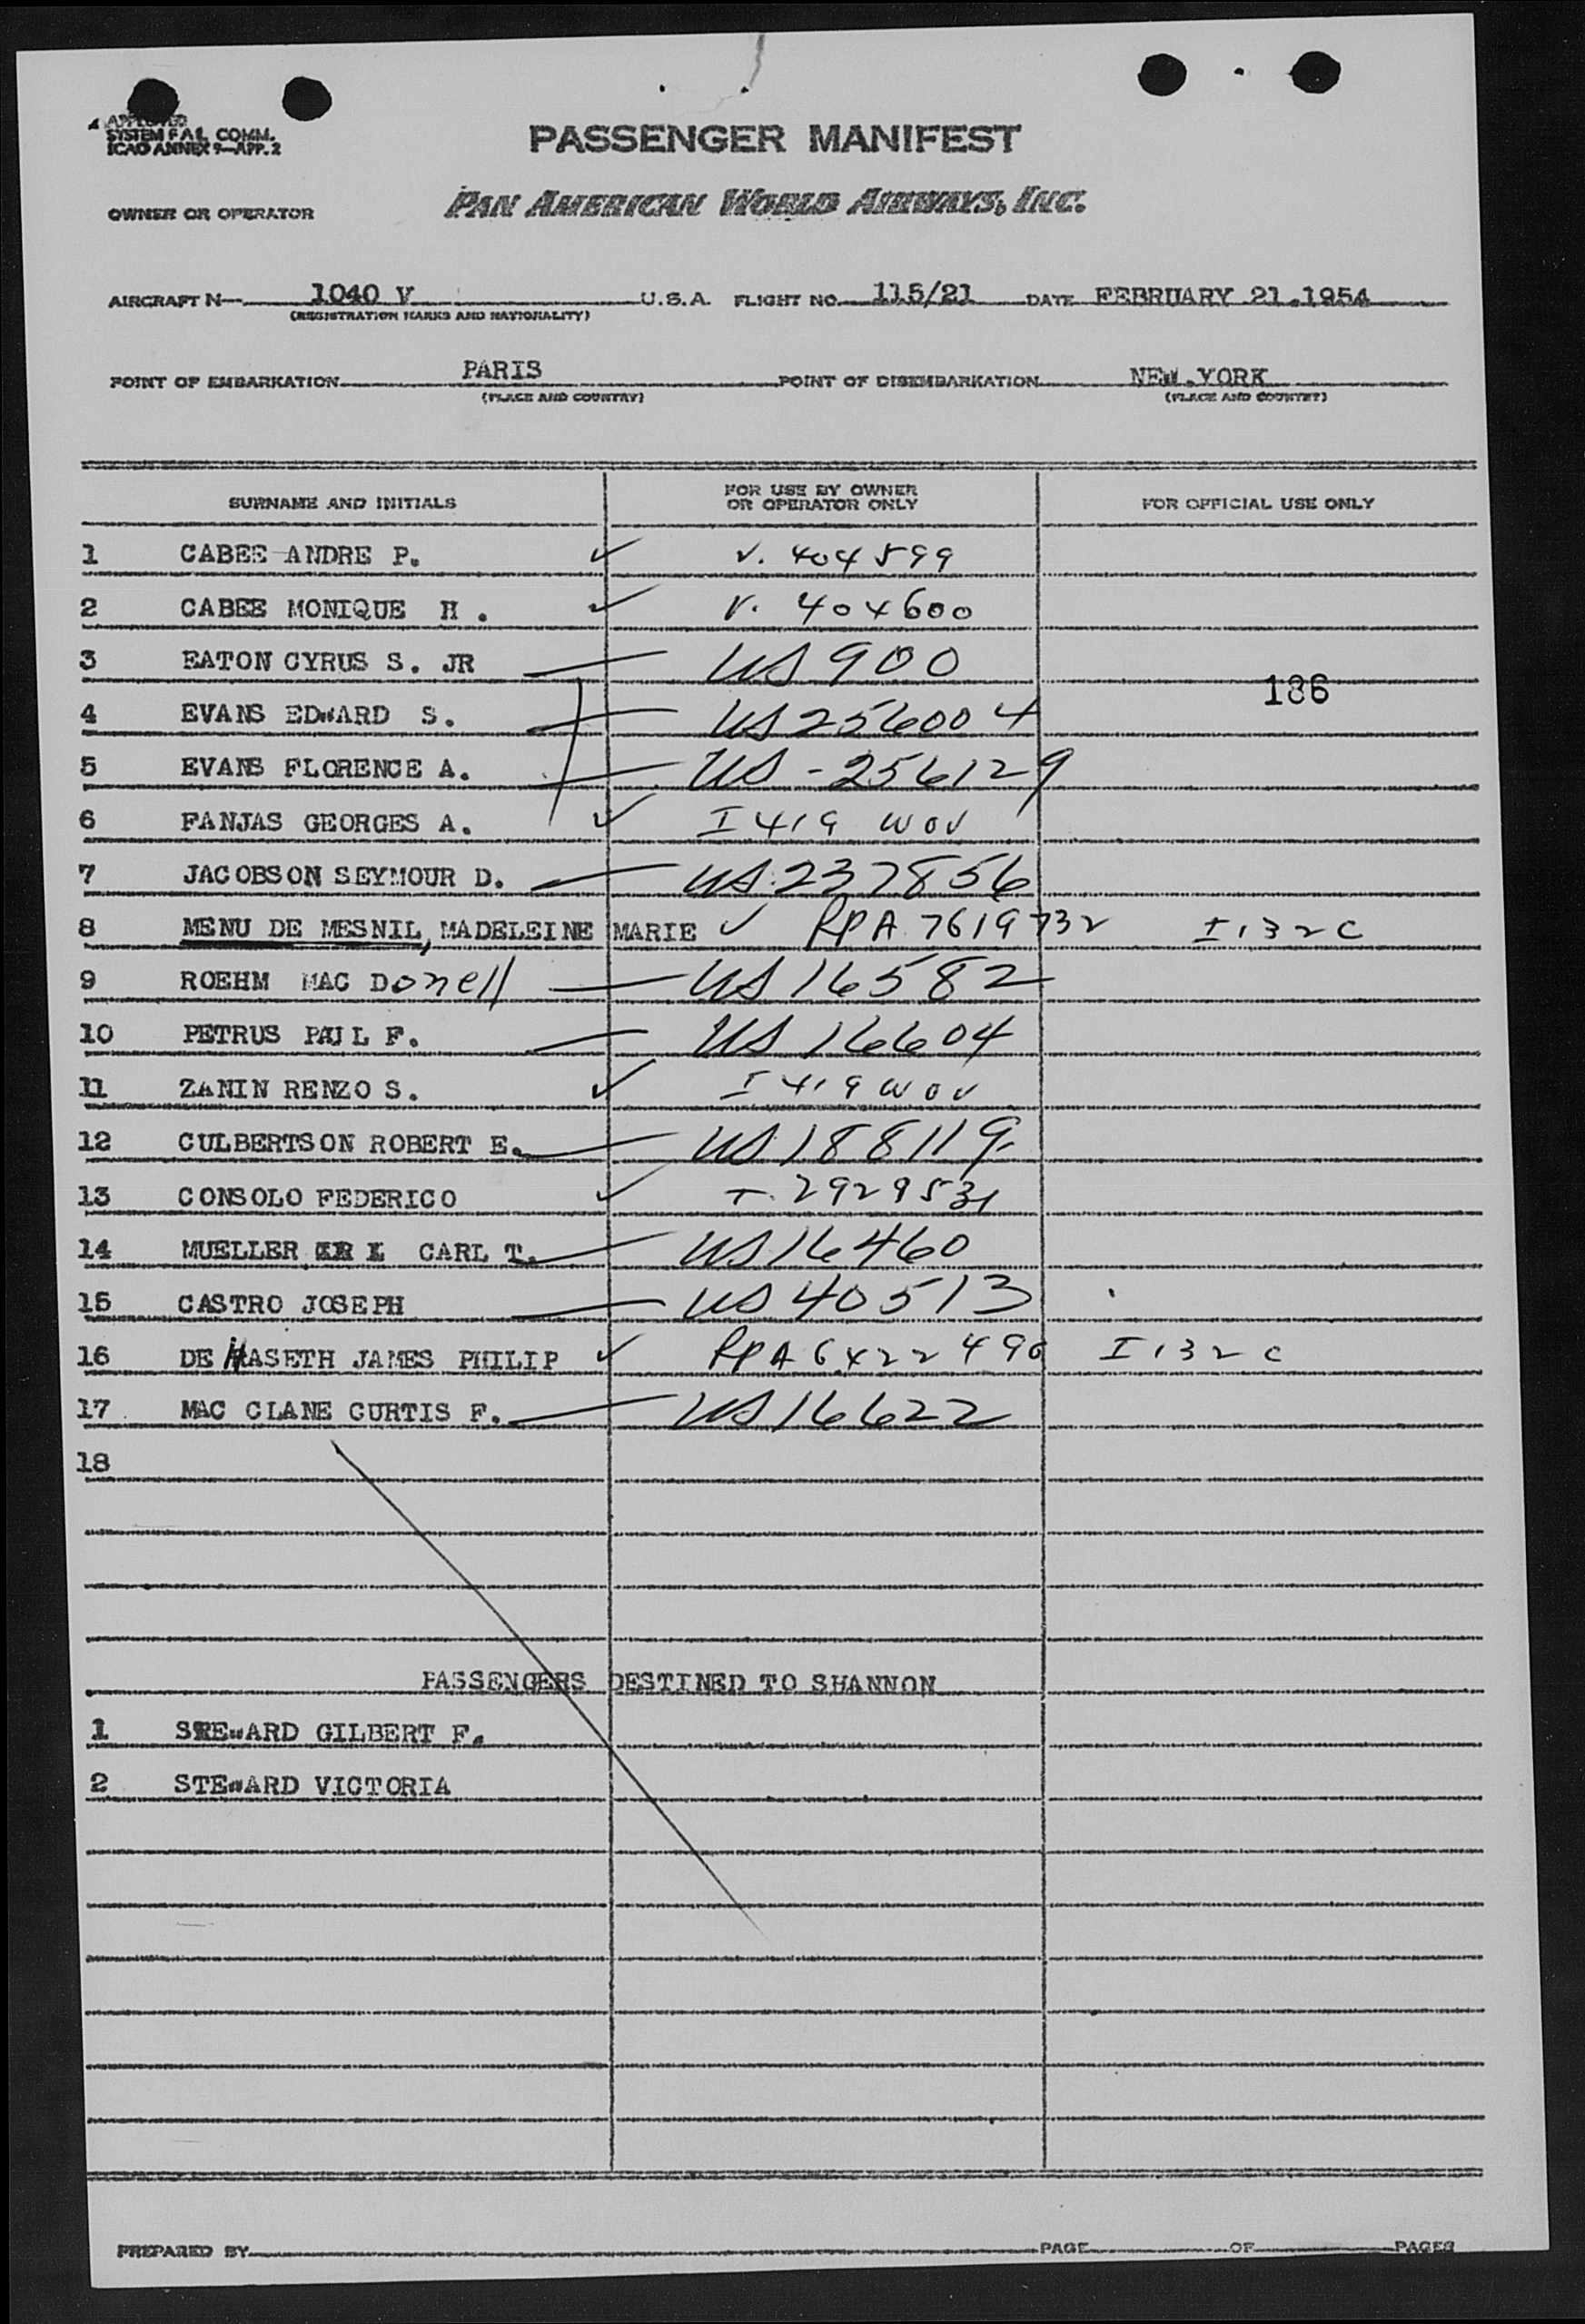 APPROVED
SYSTEM FAL COMM.
ICAO ANNEX 9—APP. 2
PASSENGER MANIFEST
OWNER OR OPERATOR PAN AMERICAN WORLD AIRWAYS, INC.
AIRCRAFT N— 1040 V U.S.A. FLIGHT NO. 115/21 DATE FEBRUARY 21.1954
(REGISTRATION MARKS AND NATIONALITY)
POINT OF EMBARKATION PARIS POINT OF DISEMBARKATION NEW.YORK
(PLACE AND COUNTRY) (PLACE AND COUNTRY)
SURNAME AND INITIALS FOR USE BY OWNER OR OPERATOR ONLY FOR OFFICIAL USE ONLY
1 CABEE ANDRE P. ✓ V. 404599
2 CABEE MONIQUE H. ✓ V. 404600
3 EATON CYRUS S. JR — US 900
136
4 EVANS EDWARD S. — US 256004
5 EVANS FLORENCE A. — US-256129
6 FANJAS GEORGES A. ✓ I 419 WOV
7 JACOBSON SEYMOUR D. — US 237856
8 MENU DE MESNIL, MADELEINE MARIE ✓ RPA 7619732 I 132 C
9 ROEHM MAC Donell — US 16582
10 PETRUS PAUL F. — US 16604
11 ZANIN RENZO S. ✓ I 419 WOV
12 CULBERTSON ROBERT E. — US 188119
13 CONSOLO FEDERICO ✓ T. 2929531
14 MUELLER CARL T. — US 16460
15 CASTRO JOSEPH — US 40513
16 DE HASETH JAMES PHILIP ✓ RPA 6422496 I 132 C
17 MAC CLANE CURTIS F. — US 16622
18
PASSENGERS DESTINED TO SHANNON
1 STEWARD GILBERT F.
2 STEWARD VICTORIA
PREPARED BY PAGE OF PAGES